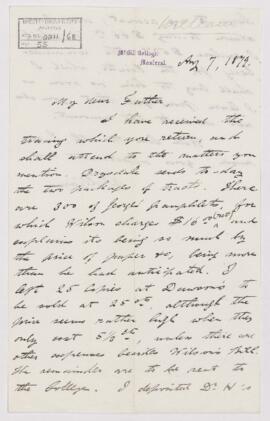 McGill College,
Montreal.
Aug 7, 1879.
My dear Luther
I have received the
tracing which you return, and
shall attend to the matters you
mention. Drysdale sends to-day
the two packages of tracts. There
are 300 of George's pamphlets, for
which Wilson charges $16 and
explains its being so much by
the price of paper &c, being more
than he had anticipated. I
left 25 copies at Dawson's to
be sold at 25 cts, although the
price seems rather high when they
only cost 5½ cts, unless there are
other expenses besides Wilson's bill.
The remainder are to be sent to
the College. I deposited Dr H's